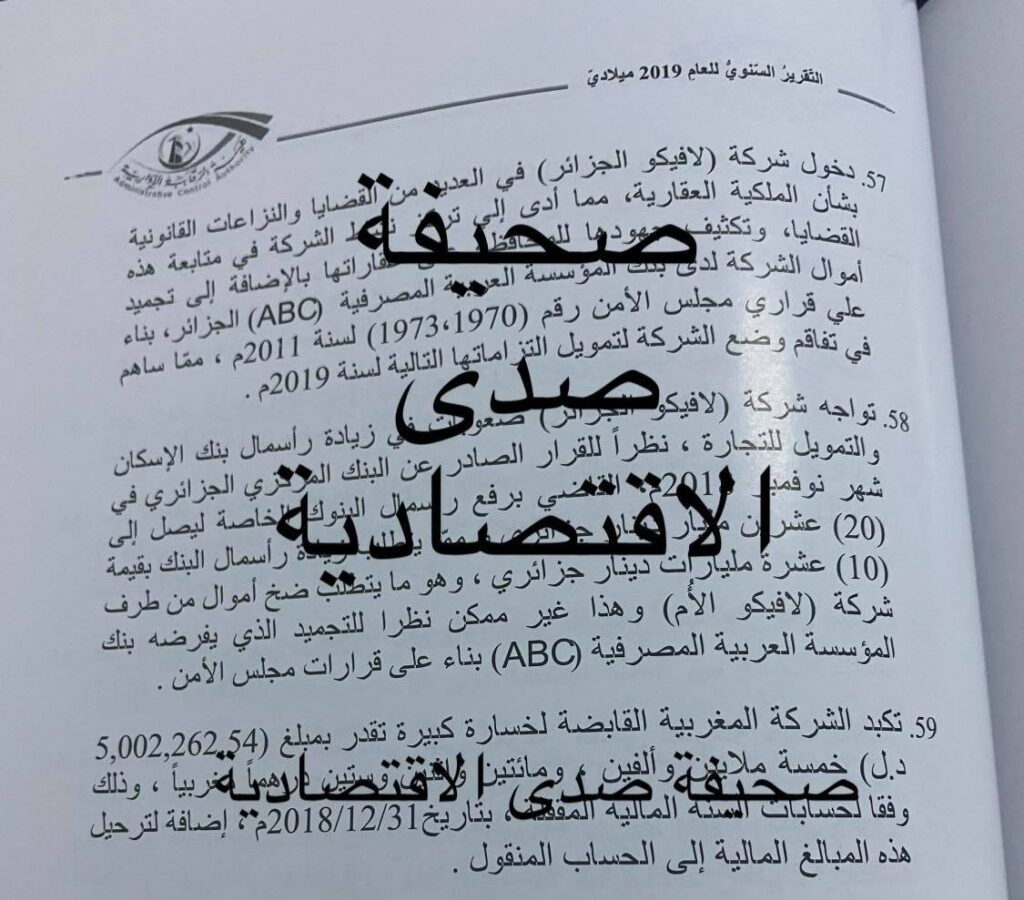 التّقريرُ السّنويُّ للعامِ 2019 ميلاديّ
هيئة الرقابة الإدارية
Administrative Control Authority
57. دخول شركة (لافيكو الجزائر) في العديد من القضايا والنزاعات القانونية
بشأن الملكية العقارية، مما أدى إلى الشركة في متابعة هذه
القضايا، وتكثيف جهودها عقاراتها بالإضافة إلى تجميد
أموال الشركة لدى بنك المؤسسة العربية المصرفية (ABC) الجزائر، بناء
علي قراري مجلس الأمن رقم (1970،1973) لسنة 2011م ، ممّا ساهم
في تفاقم وضع الشركة لتمويل التزاماتها التالية لسنة 2019م .
58. تواجه شركة (لافيكو الجزائر) صعوبات في زيادة رأسمال بنك الإسكان
والتمويل للتجارة ، نظراً للقرار الصادر عن البنك المركزي الجزائري في
شهر نوفمبر القاضي برفع رأسمال البنوك الخاصة ليصل إلى
(20) عشرين مليار دينار جزائري رأسمال البنك بقيمة
(10) عشرة مليارات دينار جزائري ، وهو ما يتطلب ضخ أموال من طرف
شركة (لافيكو الأُم) وهذا غير ممكن نظرا للتجميد الذي يفرضه بنك
المؤسسة العربية المصرفية (ABC) بناء على قرارات مجلس الأمن .
59. تكبد الشركة المغربية القابضة لخسارة كبيرة تقدر بمبلغ (5,002,262,54
د.ل) خمسة ملايين وألفين ، ومائتين وستين درهماً مغربياً ، وذلك
وفقا لحسابات السنة المالية المقفلة ، بتاريخ 2018/12/31م ، إضافة لترحيل
هذه المبالغ المالية إلى الحساب المنقول .
صحيفة
صدى
الاقتصادية
صحيفة صدى الاقتصادية